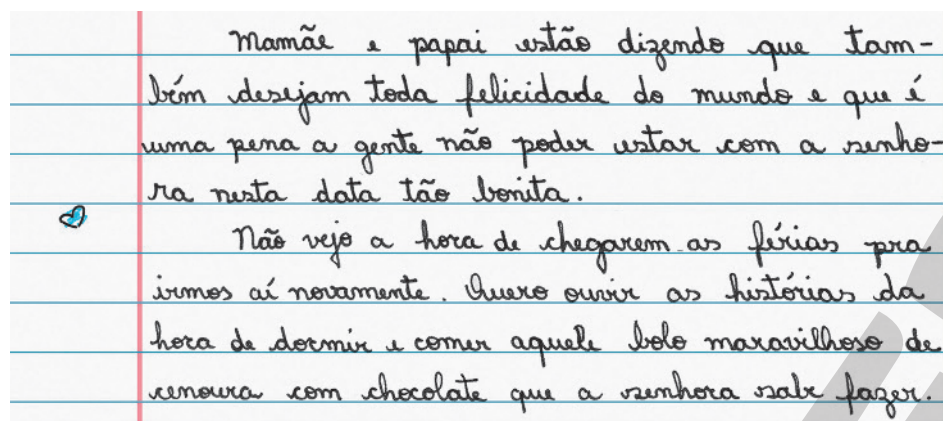 Mamãe e papai estão dizendo que tam-
bém desejam toda felicidade do mundo e que é
uma pena a gente não poder estar com a senho-
ra nesta data tão bonita.
Não vejo a hora de chegarem as férias pra
irmos aí novamente. Quero ouvir as histórias da
hora de dormir e comer aquele bolo maravilhoso de
cenoura com chocolate que a senhora sabe fazer.